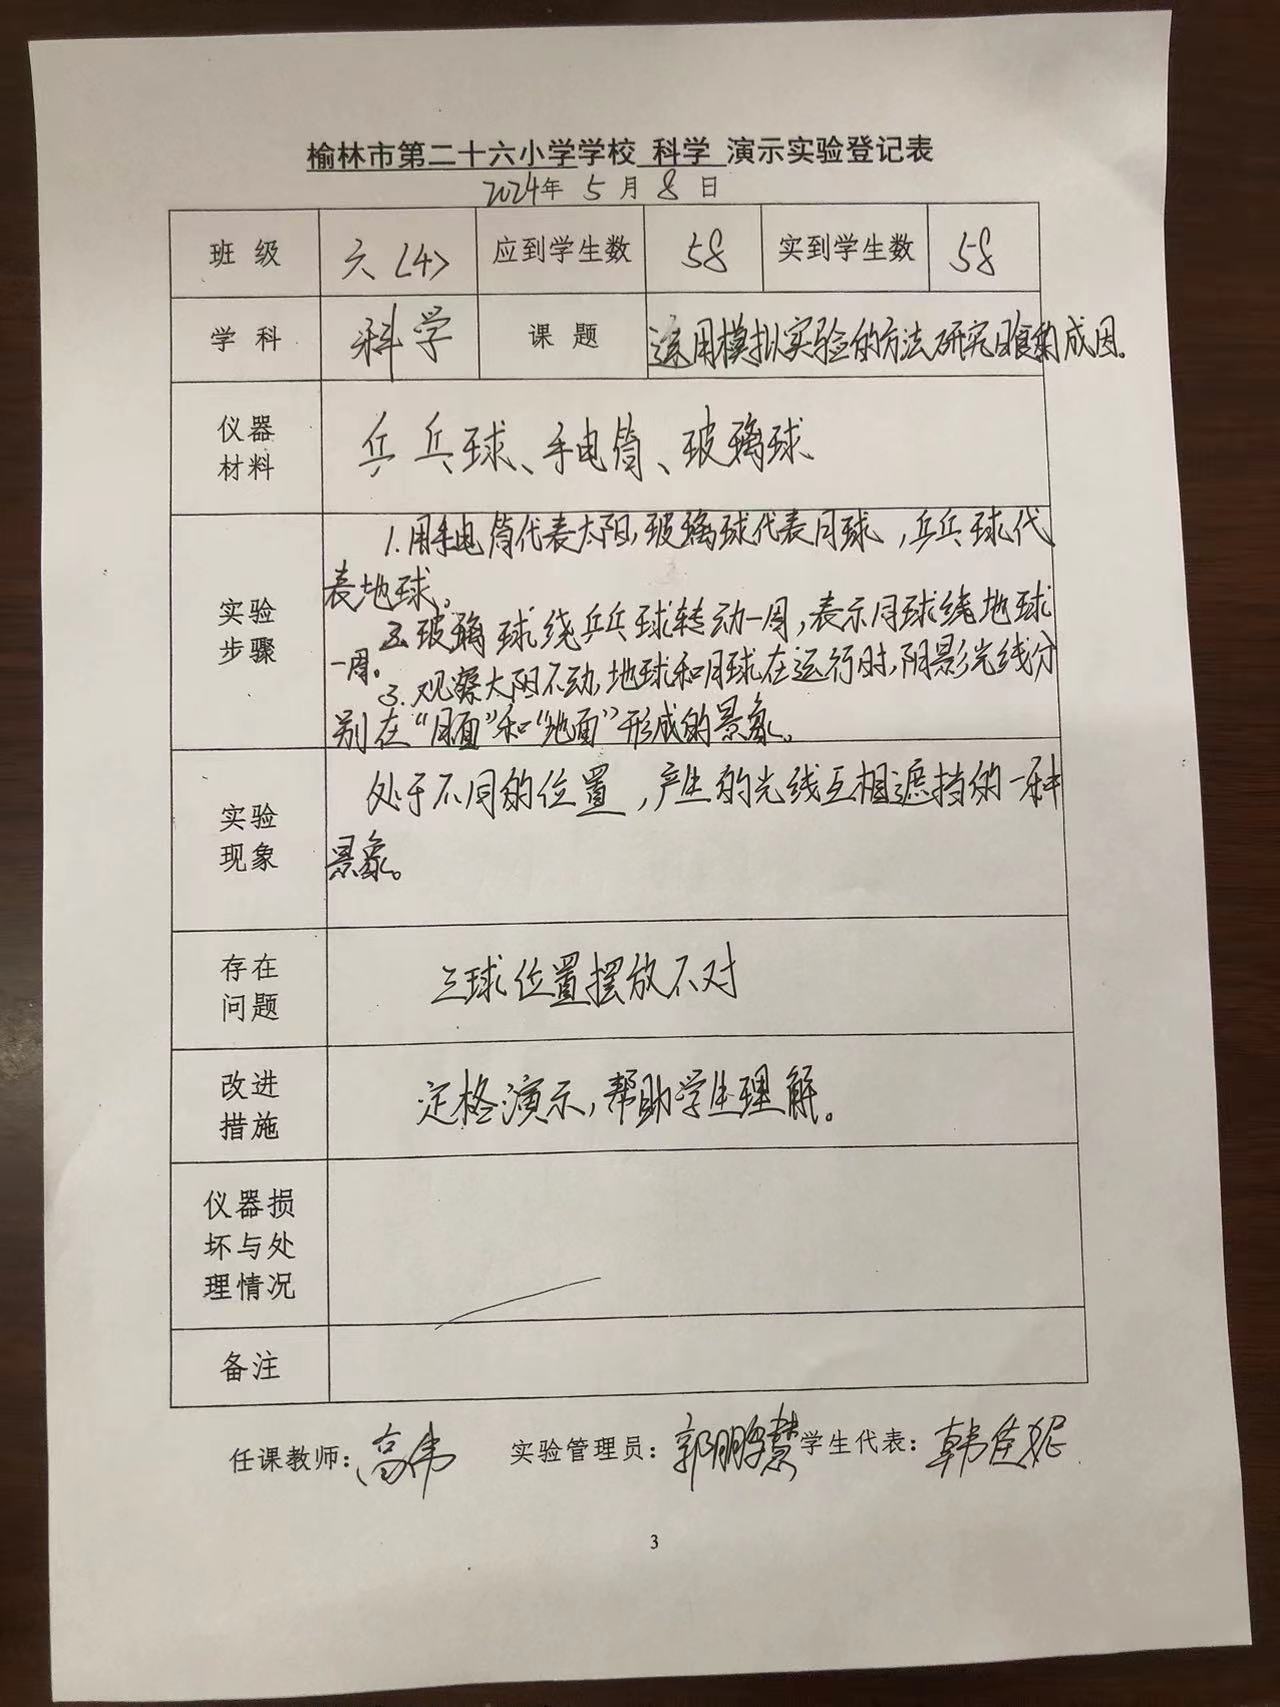 榆林市第二十六小学学校 科学 演示实验登记表
2024年 5 月 8 日
班 级 六〈4〉 应到学生数 58 实到学生数 58
学 科 科学 课 题 运用模拟实验的方法研究日食的成因。
仪器
材料
乒乓球、手电筒、玻璃球
实验
步骤
1.用手电筒代表太阳,玻璃球代表月球,乒乓球代
表地球。
2.玻璃球绕乒乓球转动一周,表示月球绕地球
一周。
3.观察太阳不动,地球和月球在运行时,阴影光线分
别在“月面”和“地面”形成的景象。
实验
现象
处于不同的位置,产生的光线互相遮挡的一种
景象。
存在
问题
三球位置摆放不对
改进
措施
定格演示,帮助学生理解。
仪器损
坏与处
理情况
备注
任课教师:高伟 实验管理员:郭鹏慧 学生代表:韩佳妮
3